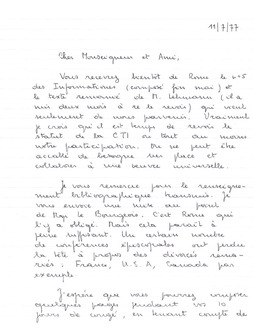 11/7/77
Cher Monseigneur et Ami,
Vous recevrez bientôt de Rome le n°5
des Informations (composé fin mai) et
le texte remanié de M. Lehmann (il a
mis deux mois à le revoir) qui vient
seulement de nous parvenir. Vraiment
je crois qu'il est temps de revoir le
statut de la CTI ou tout au moins
notre participation. On ne peut être
accablé de besogne sur place et
collaborer à une œuvre universelle.
Je vous remercie pour le renseigne-
ment bibliographique transmis. Je
vous envoie une mise au point
de Mgr le Bourgeois. C'est Rome qui
l'y a obligé. Mais cela paraît à
peine suffisant. Un certain nombre
de conférences épiscopales ont perdu
la tête à propos des divorcés rema-
riés : France, U.S.A, Canada par
exemple.
J'espère que vous pourrez
quelques pages pendant vos 10
jours de congé, en tenant compte de